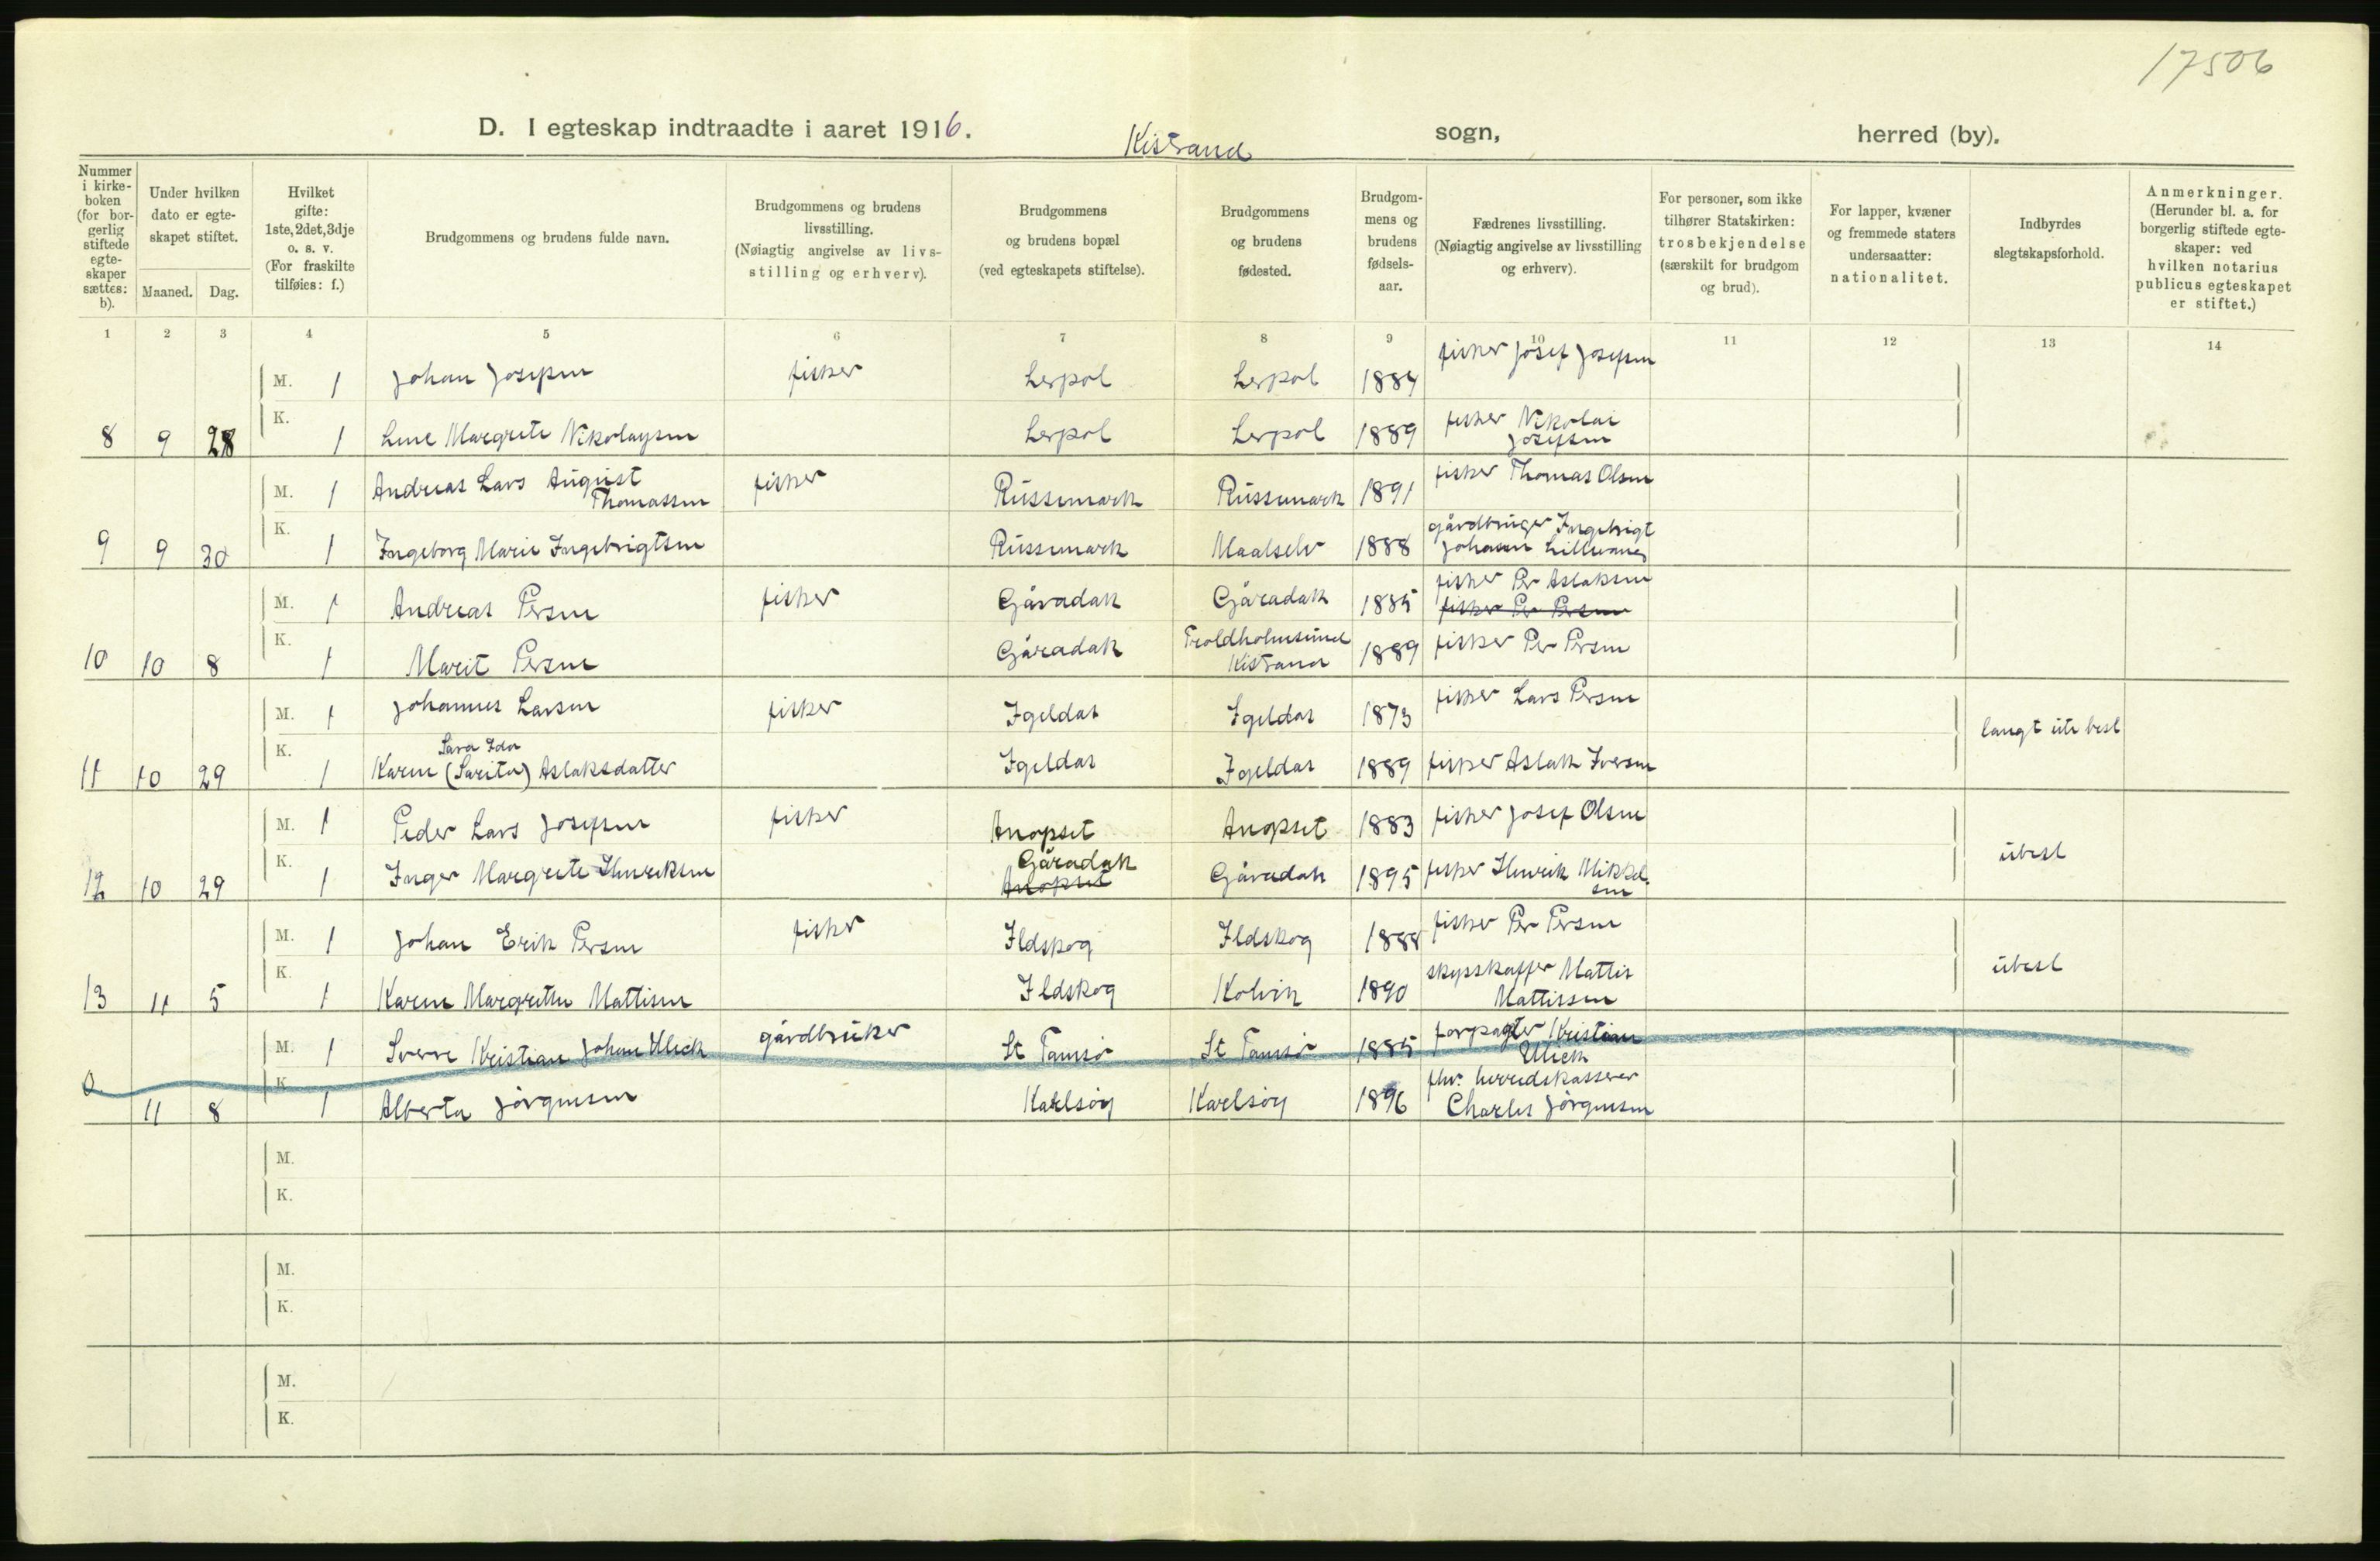 17506
D. I egteskap indtraadte i aaret 1916. Kistrand sogn, herred (by).
Nummer i kirke-boken (for bor-gerlig stiftede egte-skaper sættes: b).
Under hvilken dato er egte-skapet stiftet.
Maaned. Dag.
Hvilket gifte: 1ste, 2det, 3dje o. s. v. (For fraskilte tilføies: f.)
Brudgommens og brudens fulde navn.
Brudgommens og brudens livsstilling. (Nøiagtig angivelse av livs-stilling og erhverv).
Brudgommens og brudens bopæl (ved egteskapets stiftelse).
Brudgommens og brudens fødested.
Brudgom-mens og brudens fødsels-aar.
Fædrenes livsstilling. (Nøiagtig angivelse av livsstilling og erhverv).
For personer, som ikke tilhører Statskirken: trosbekjendelse (særskilt for brudgom og brud).
For lapper, kvæner og fremmede staters undersaatter: nationalitet.
Indbyrdes slegtskapsforhold.
Anmerkninger. (Herunder bl. a. for borgerlig stiftede egte-skaper: ved hvilken notarius publicus egteskapet er stiftet.)
1 2 3 4 5 6 7 8 9 10 11 12 13 14
M. 1 Johan Josefsen fisker Lerpol Lerpol 1884 fisker Josef Josefsen
8 9 28 K. 1 Lene Margrete Nikolaysen Lerpol Lerpol 1889 fisker Nikolai Josefsen
M. 1 Andreas Lars August Thomassen fisker Russemark Russemark 1891 fisker Thomas Olsen
9 9 30 K. 1 Ingeborg Marie Ingebrigtsen Russemark Maalselv 1888 gårdbruger Ingebrigt Johansen Lillevanes
M. 1 Andreas Persen fisker Gåradak Gåradak 1885 fisker Per Aslaksen
fisker Per Persen
10 10 8 K. 1 Marit Persen Gåradak Troldholmsund Kistrand 1889 fisker Per Persen
M. 1 Johannes Larsen fisker Igeldas Igeldas 1873 fisker Lars Persen langt ute besl
Sara Ida
11 10 29 K. 1 Karen (Sarita) Aslaksdatter Igeldas Igeldas 1889 fisker Aslak Iversen
M. 1 Peder Lars Josefsen fisker Anopset Anopset 1883 fisker Josef Olsen
Gåradak
12 10 29 K. 1 Inger Margrete Henriksen Anopset Gåradak 1895 fisker Henrik Mikkelsen ubesl
M. 1 Johan Erik Persen fisker Ildskog Ildskog 1888 fisker Per Persen
13 11 5 K. 1 Karen Margrethe Mattisen Ildskog Kolvik 1890 skysskaffer Mattis Mattissen ubesl
M. 1 Sverre Kristian Johan Ulich gårdbruker St Tamsø St Tamsø 1885 forpagter Kristian Ulich
0 11 8 K. 1 Alberta Jørgensen Karlsøy Karlsøy 1896 fhv. herredskasserer Charles Jørgensen
M.
K.
M.
K.
M.
K.